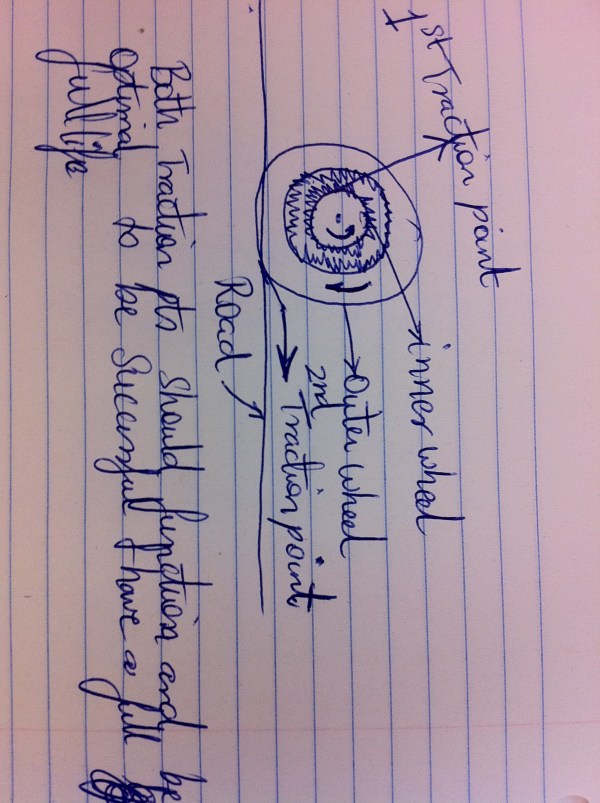 1st Traction point
inner wheel
Outer wheel
2nd Traction point
Road
Both Traction pts should function and be
optimal to be successful & have a full
full life